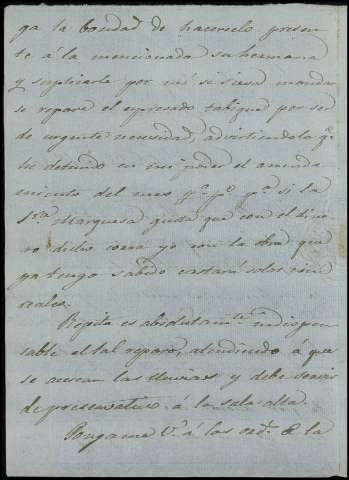 ga la bondad de hacerselo presen
te á la mencionada su hermana
y suplicarla por mi si sirva mandar
se repare el espresado tabique por ser
de urgente necesidad, advirtiendola q.e
he detenido en mi poder el arrenda
miento del mes p.r si la
S.ra Marquesa gusta que con el dine
ro dicho corra yo con la obra que
ya tengo sabido costará solos
reales.
Repito es absolutam.te indispen
sable el tal reparo, atendiendo á que
se acercan las lluvias y debe servir
de preservativo á la sala alta.
Pongame V. á las ord.s de la